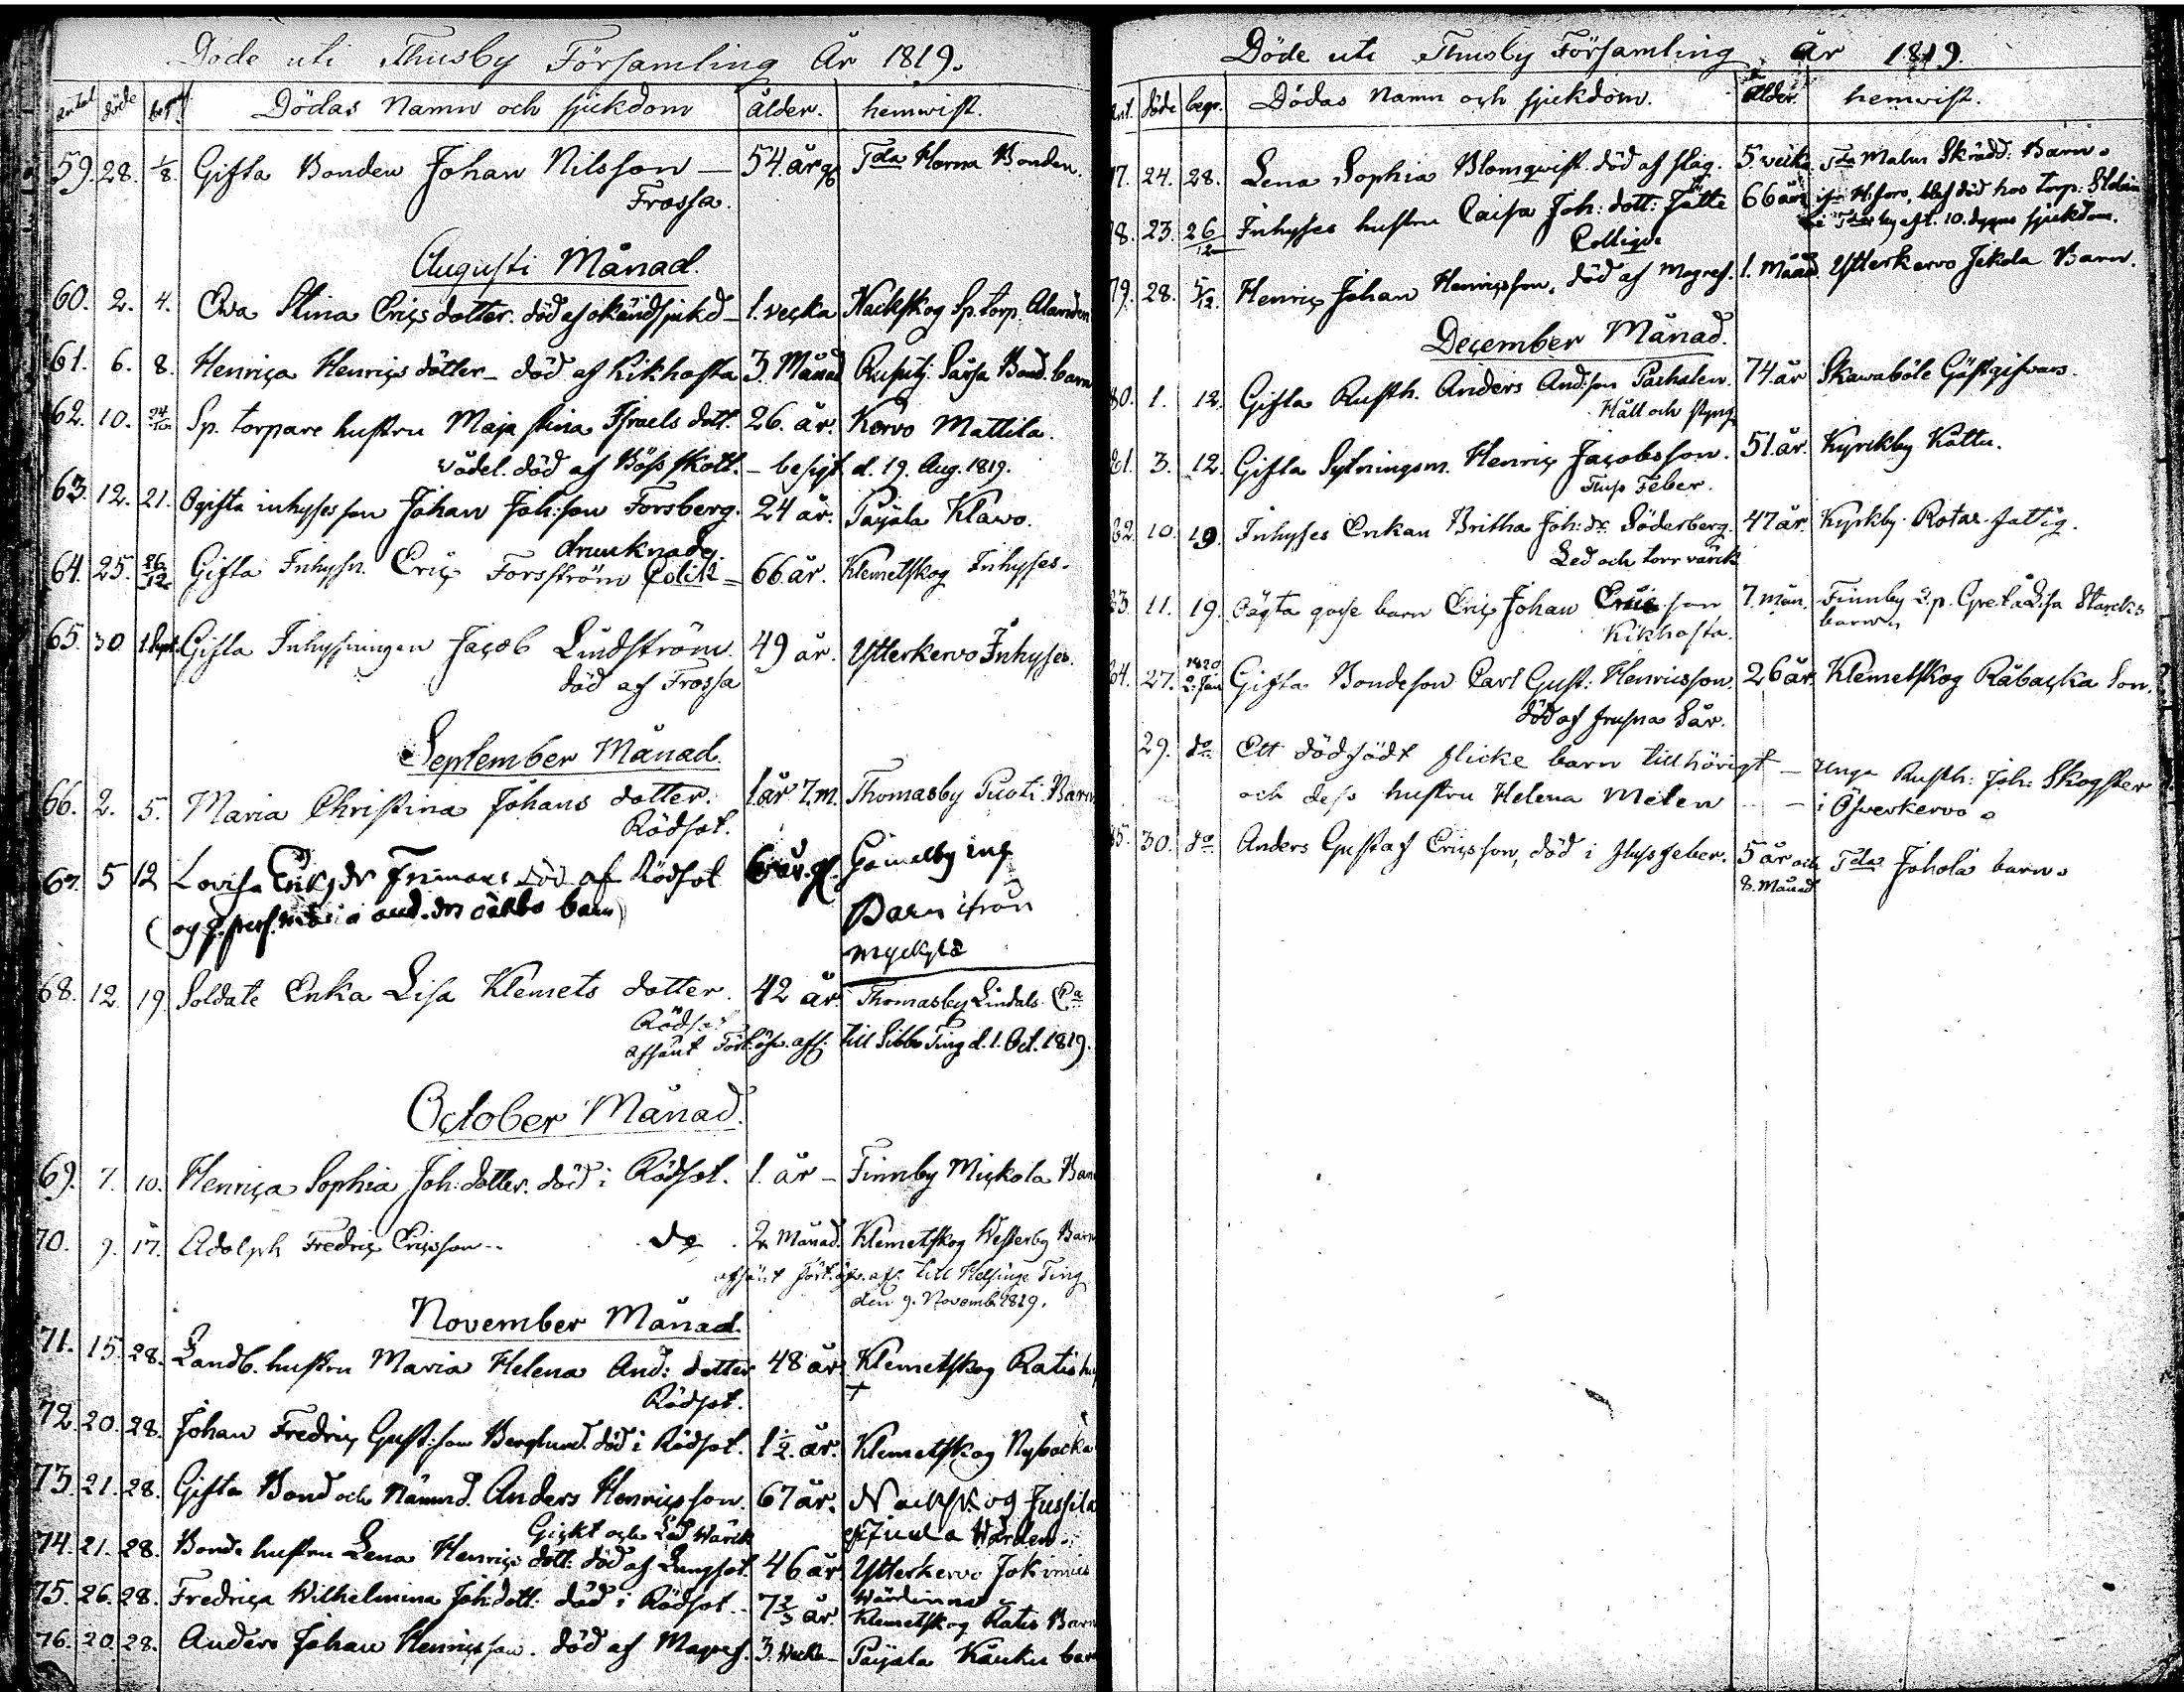 Döde uti Thusby Församling År 1819.
Antal döde begr. Dödas Namn och sjukdom ålder. hemwist.
59. 28. 1/8. Gifta Bonden Johan Nilsson — 54. år Tda Horma Bonden.
Frossa.
Augusti Månad.
60. 2. 4. Ewa Stina Erics dotter. död af okänd sjukd — 1. vecka Nackskog Sp. torp.
61. 6. 8. Henrica Henrics dotter — död af Kikhosta 3. Månad Rusutj. Sarsa Bond. barn
62. 10. 24/10 Sp. torpare hustru Maja Stina Israels dott. 26. år. Kervo Mattila.
vådel. död af Böss skott. — besigt. d. 19. Aug. 1819.
63. 12. 21. Ogifta inhyses son Johan Joh:son Forsberg. 24 år. Paijala Klawo.
drunknade.
64. 25. 26/12 Gifta Inhysn. Eric Forsström Colik — 66. år. Klemetskog Inhyses.
65. 30. 1. Sept. Gifta Inhysningen Jacob Lindström. 49 år. Ytterkervo Inhyses.
död af Frossa
September Månad.
66. 2. 5. Maria Christina Johans dotter. 1. år 7. m. Thomasby Tuoti Barn
Rödsot.
67. 5 12 Lovisa Eriks dr Frimans död af Rödsot 6 år. Gamelby
barn Barn ifrån
68. 12. 19. Soldate Enka Lisa Klemets dotter. 42 år. Thomasby Lindals
Rödsot
afsänt Fört. öfv. afl. till Sibbo Ting d. 1. Oct. 1819.
October Månad.
69. 7. 10. Henrica Sophia Joh: dotter. död i Rödsot. 1. år — Finnby Mickola Barn
70. 9. 17. Adolph Fredric Ericsson.. do 2. Månad. Klemetskog Westerby Barn
afsänt fört. öfv. afl. till Helsinge Ting
den 9. Novemb. 1819.
November Månad.
71. 15. 28. Landb. hustru Maria Helena And: dotter 48 år. Klemetskog Ratis
Rödsot. +
72. 20. 28. Johan Fredric Gust:son Berglund. död i Rödsot. 1½. år. Klemetskog Nybacka
73. 21. 28. Gifta Bond och Nämnd. Anders Henricsson. 67 år. Nackskog Jussila
Gickt och Led Wärck Wärden.
74. 21. 28. Bonde hustru Lena Henrics dott: död af Lungsot. 46 år Ytterkervo
Wärdinna
75. 26. 28. Fredrica Wilhelmina Joh: dott: död i Rödsot. 7 2/3 år Klemetskog Ratis Barn
76. 20. 28. Anders Johan Henricsson. död af Magref. 3. Weck — Paijala Kauku barn
Döde uti Thusby Församling År 1819.
Ant. döde begr. Dödas Namn och sjukdom. Ålder. hemwist.
77. 24. 28. Lena Sophia Blomqvist. död af slag. 5. veck. Tda Malm Skrädd: Barn.
78. 23. 26/12 Inhyses hustru Caisa Joh: dott: Jätte 66 år H:fors, blef död hos torp:
Collique eft. 10. dygns sjukdom.
79. 28. 5/12. Henric Johan Henricsson, död af Magref. 1. Månad. Ytterkervo Jekola Barn.
December Månad.
80. 1. 12. Gifta Rusth. Anders And:son Pachalen. 74. år Skawaböle Gästgifvars.
Håll och styng
81. 3. 12. Gifta Sytningsm. Henric Jacobsson. 51. år. Kyrckby Kåttu.
Fluss Feber.
82. 10. 19. Inhyses Enkan Britha Joh: dr Söderberg. 47 år. Kyrkby Rotas fattig.
Led och torr värck
83. 11. 19. Oägta gosse barn Eric Johan Ericsson 7. mån. Finnby Q. p. Greta Lisa Starcks
Kikhosta. barn
84. 27. 1820 2. Jan Gifta Bondeson Carl Gust: Henricsson. 26 år. Klemetskog Råbacka Son.
död af frusna Sår.
29. do Ett dödfödt flicke barn tillhörigt — Unga Rusth: Joh: Skogster
och dess hustru Helena Meten — i Öfverkervo
85. 30. do Anders Gustaf Ericsson, död i flussfeber. 5 år och Tda Johola barn.
8. Månad